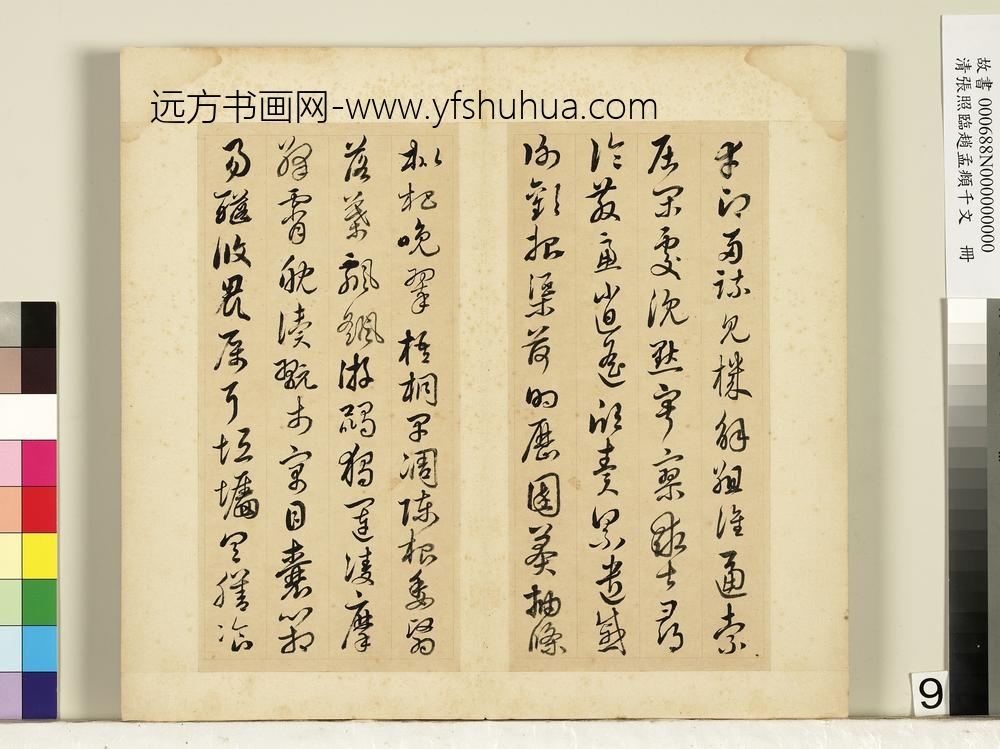 远方书画网-www.yfshuhua.com
幸即兩疏見機解組誰逼索
居閑處沈默寂寥求古尋
論散慮逍遙欣奏累遣慼
謝歡招渠荷的歷園莽抽條
枇杷晚翠梧桐早凋陳根委翳
落葉飄颻游鵾獨運凌摩
絳霄耽讀翫市寓目囊箱
易輶攸畏屬耳垣牆具膳飡
故書 000688N000000000
清張照臨趙孟頫千文 冊
9